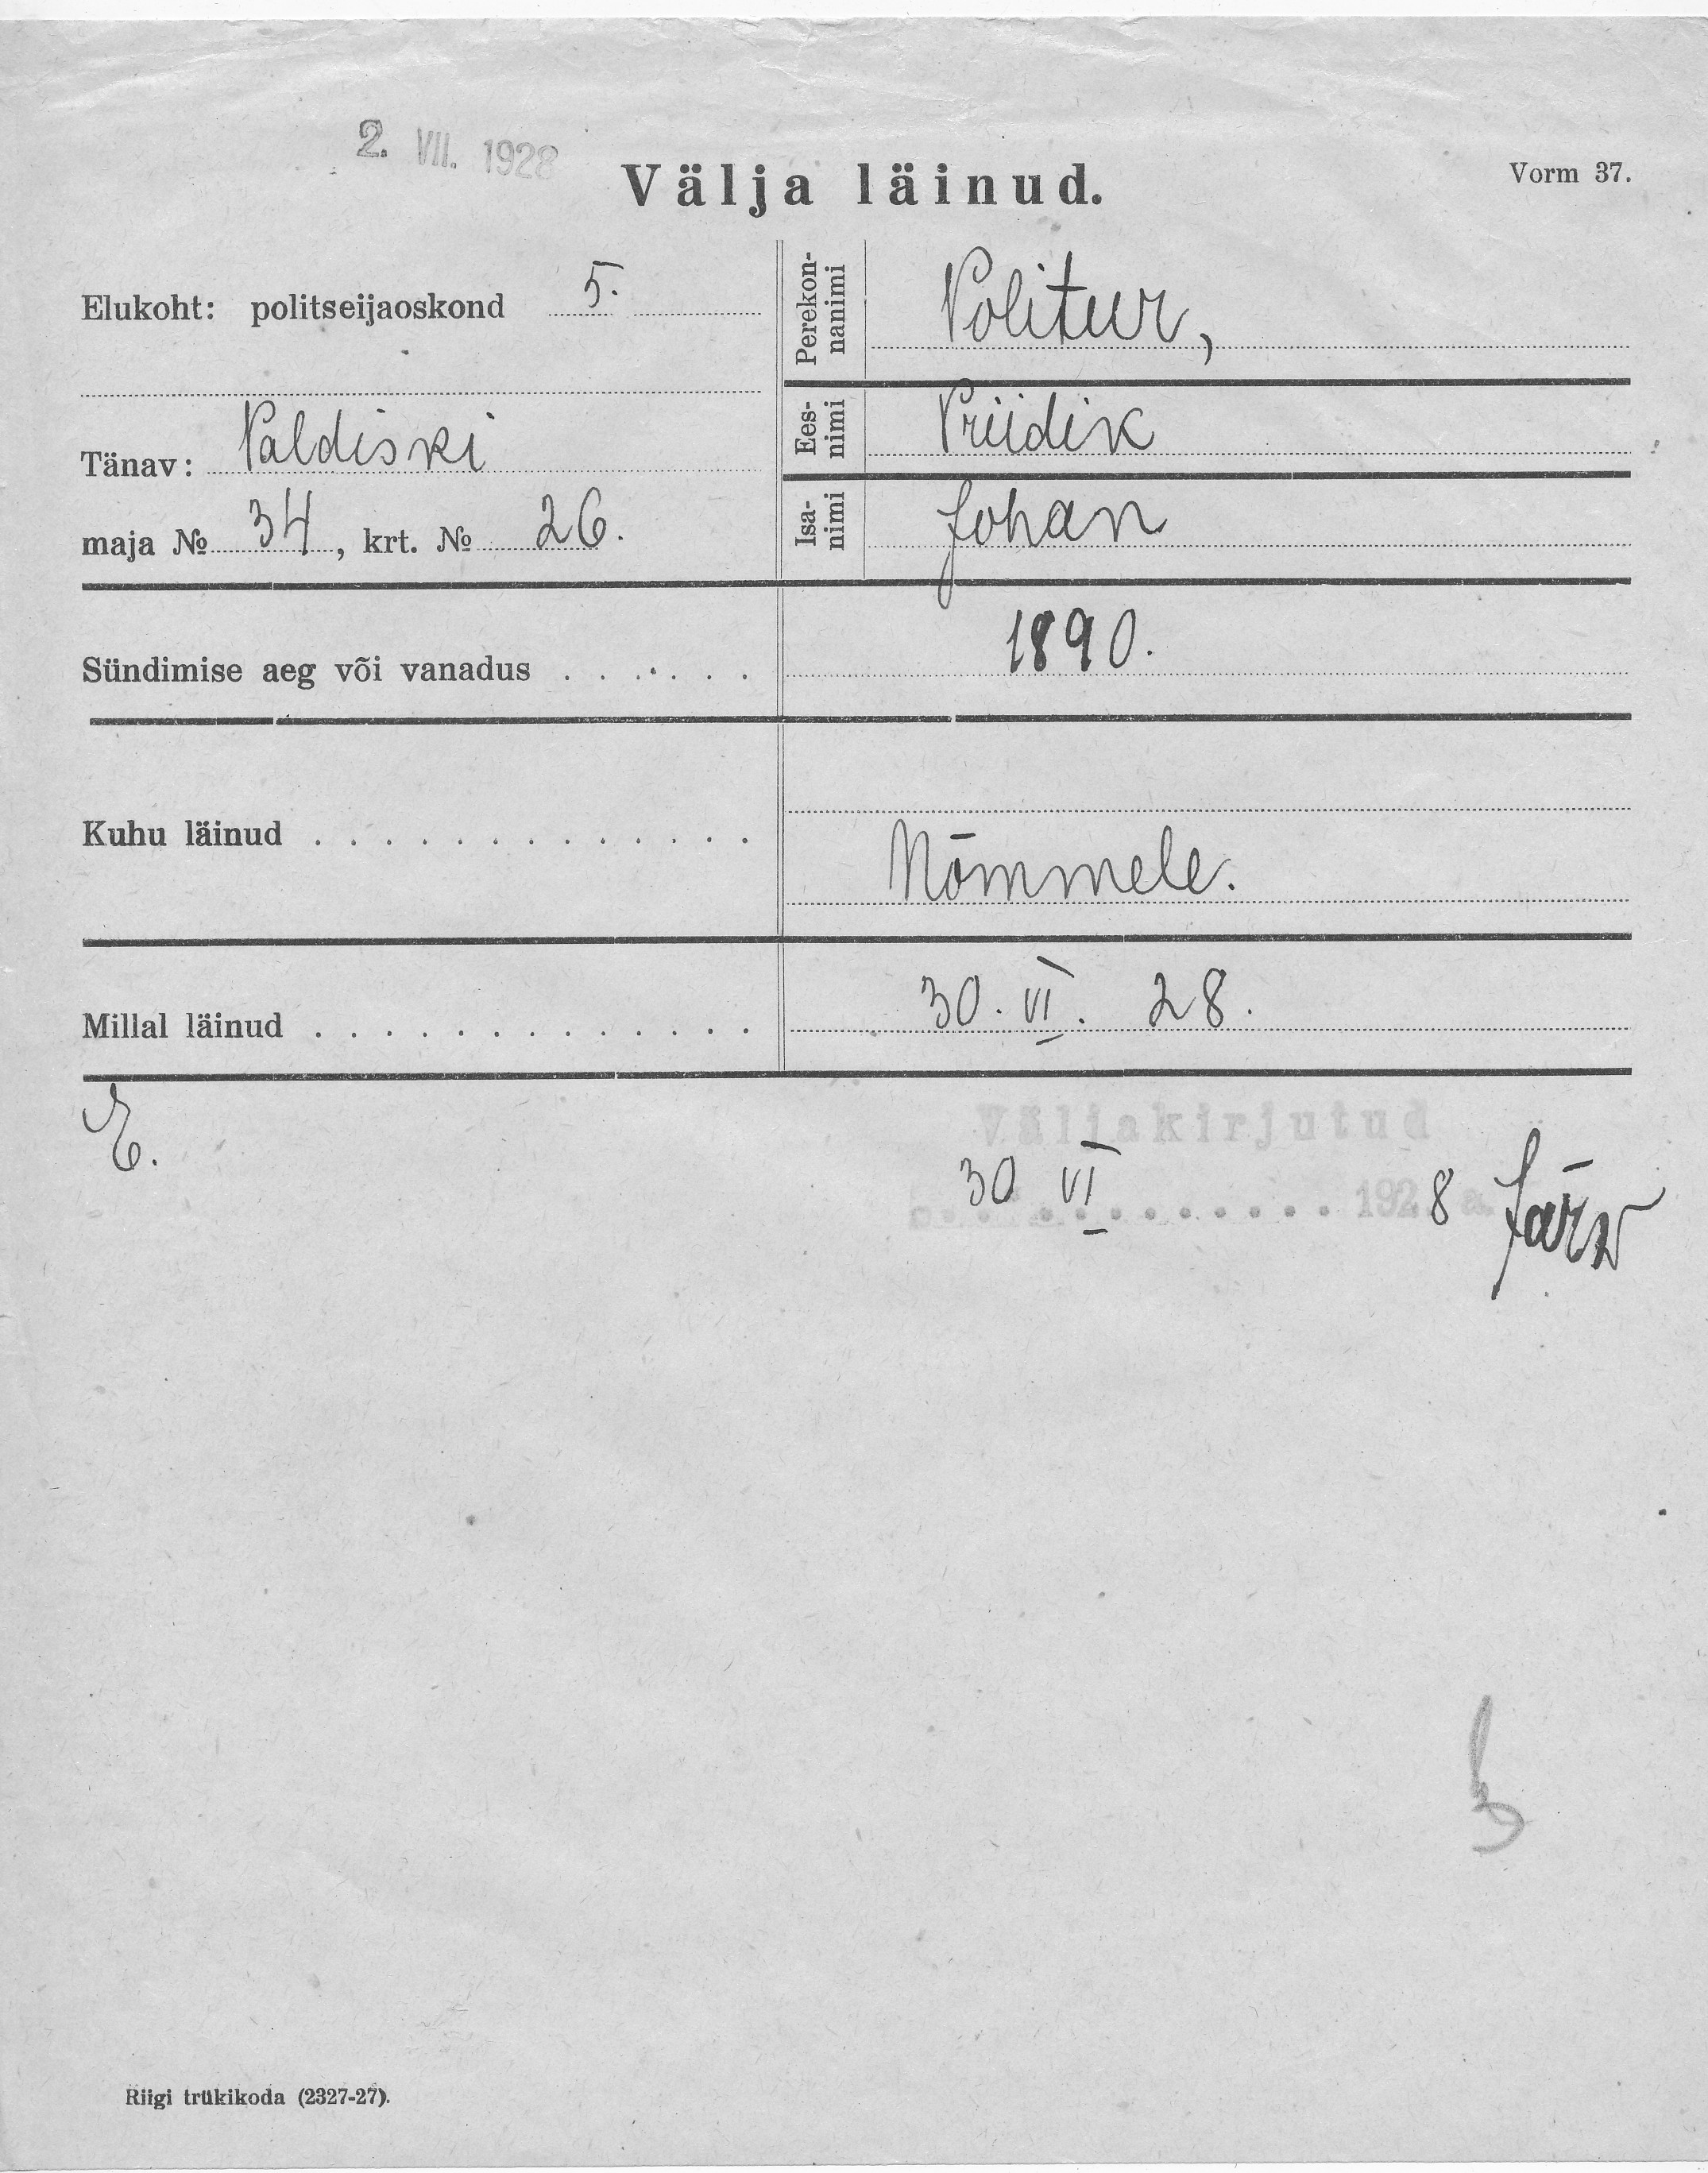 2. VII. 1928
Välja läinud.
Vorm 37.
Elukoht: politseijaoskond 5.
Tänav: Paldiski
maja № 34, krt. № 26.
Perekon-
nanimi
Politur,
Ees-
nimi
Priidik
Isa-
nimi
Johan
Sündimise aeg või vanadus . . . . . . .
1890.
Kuhu läinud . . . . . . . . . . . . .
Nõmmele.
Millal läinud . . . . . . . . . . . . .
30. VI. 28.
E.
Väljakirjutud
30 VI 1928 a. Järv
Riigi trükikoda (2327-27).